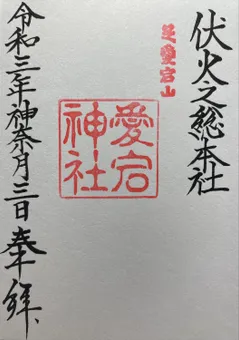 伏火之総本社
愛宕山
愛宕
神社
令和三年神奈月三日奉拝